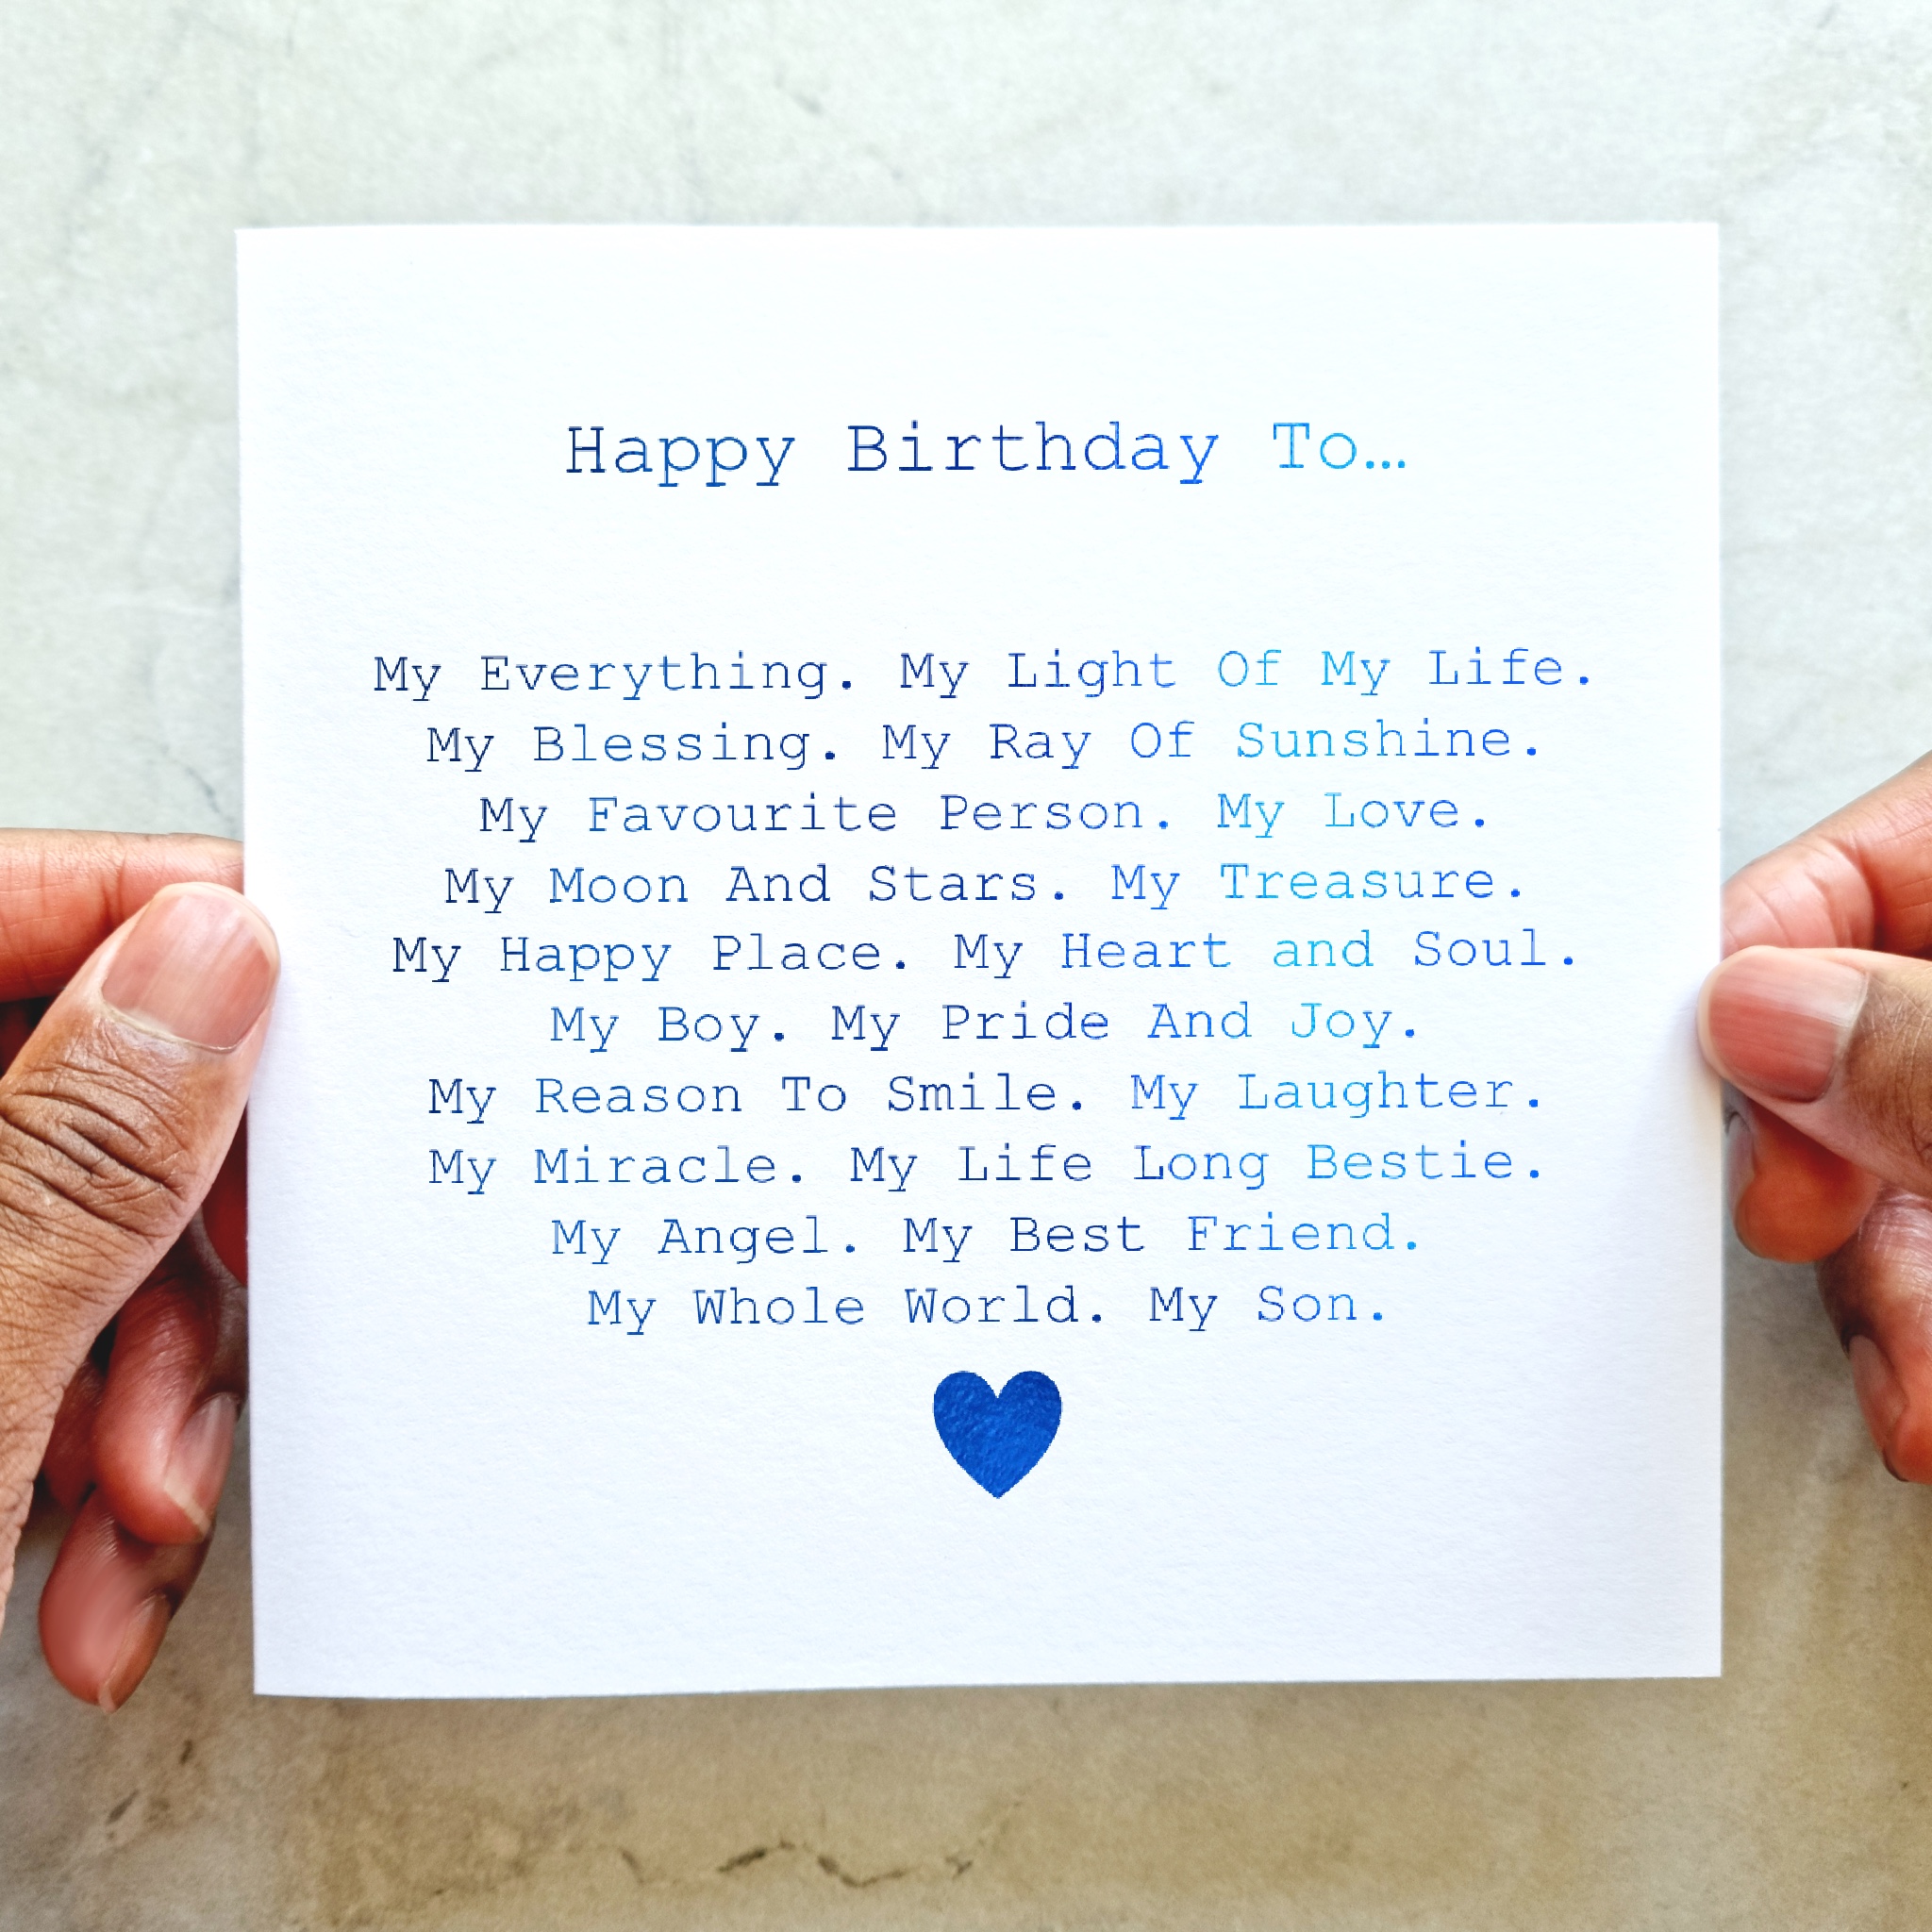 Happy Birthday To…
My Everything. My Light Of My Life.
My Blessing. My Ray Of Sunshine.
My Favourite Person. My Love.
My Moon And Stars. My Treasure.
My Happy Place. My Heart and Soul.
My Boy. My Pride And Joy.
My Reason To Smile. My Laughter.
My Miracle. My Life Long Bestie.
My Angel. My Best Friend.
My Whole World. My Son.